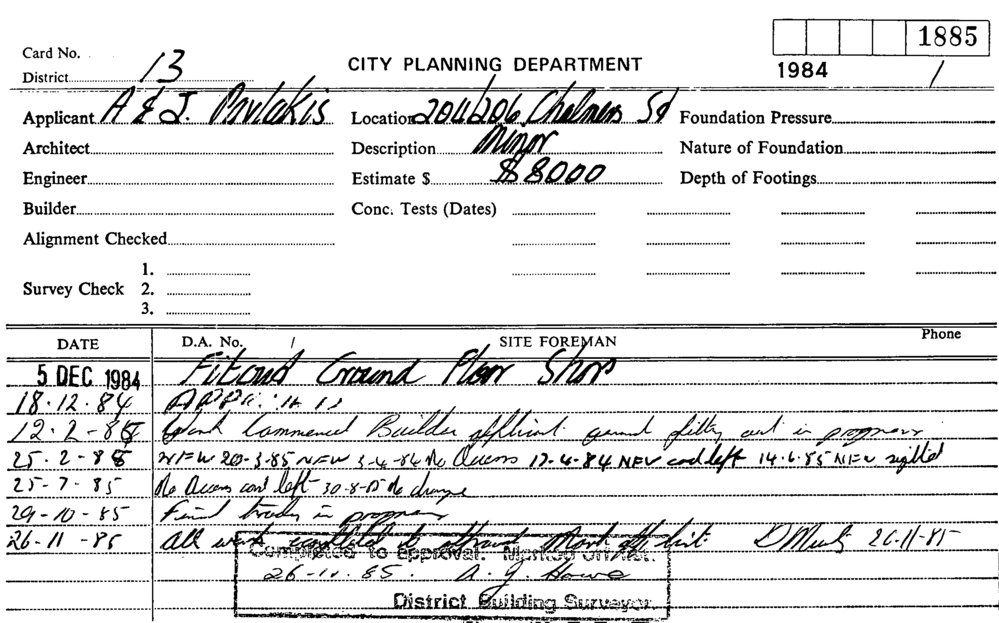 1885
Card No.
District 13
CITY PLANNING DEPARTMENT
1984 /
Applicant A & J. Pavlakis Location 204/206 Chalmers St Foundation Pressure
Architect Description Minor Nature of Foundation
Engineer Estimate $ $8000 Depth of Footings
Builder Conc. Tests (Dates)
Alignment Checked
1.
Survey Check 2.
3.
DATE D.A. No. / SITE FOREMAN Phone
5 DEC 1984 Fitout Ground Floor Shop
18.12.84
12.2-85 Work Commenced Builder fitting out in progress
25.2-85 NFW 20-3-85 NFW No Access 17-4-84 NFW card left 14.6.85 NFW sighted
25-7.85 No Access card left 30-8-85 No change
29-10-85 Final trades in progress
26-11-85 All work completed 26-11-85
Completed to approval. Marked off list.
26-11.85. A. J. Howe
District Building Surveyor.